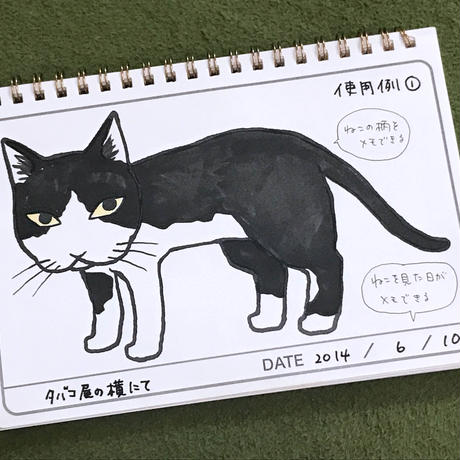 使用例①
ねこの柄を
メモできる
ねこを見た日が
メモできる
DATE 2014 / 6 / 10
タバコ屋の横にて